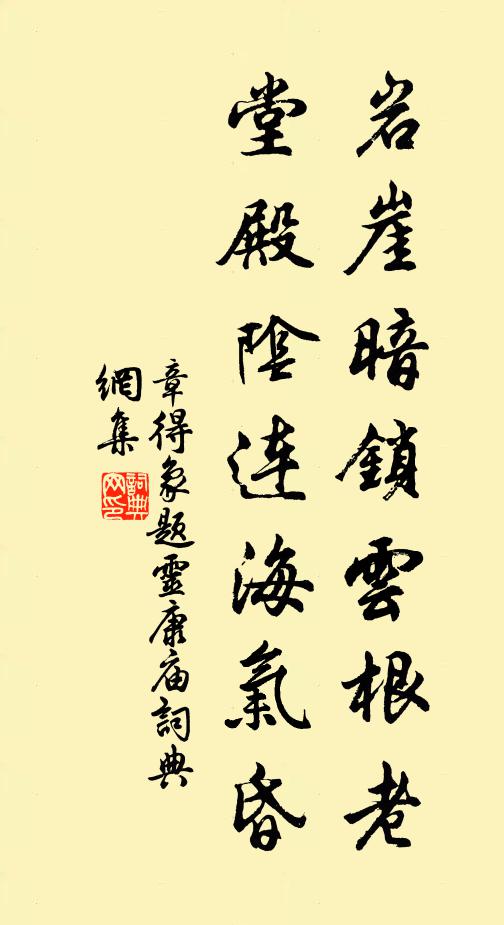 岩崖暗鎖雲根老
堂殿陰連海氣昏
章得象題靈康庙詞典
網集
詞典
网印